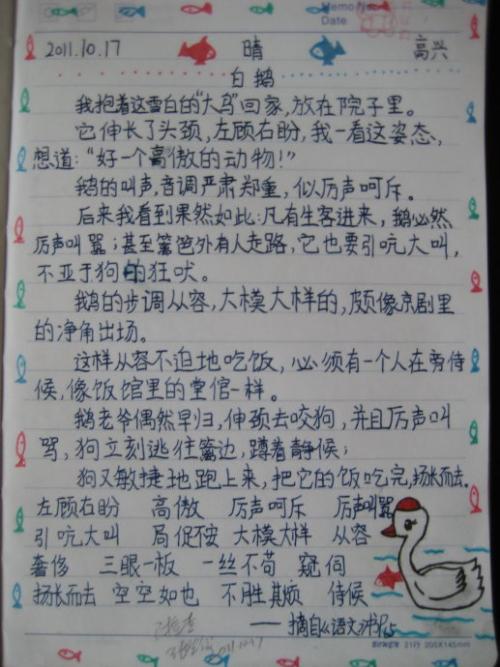 Memo No.
Date
2011.10.17 晴 高兴
白鹅
我抱着这雪白的“大鸟”回家,放在院子里。
它伸长了头颈,左顾右盼,我一看这姿态,
想道:“好一个高傲的动物!”
鹅的叫声,音调严肃郑重,似厉声呵斥。
后来我看到果然如此:凡有生客进来,鹅必然
厉声叫嚣;甚至篱笆外有人走路,它也要引吭大叫,
不亚于狗的狂吠。
鹅的步调从容,大模大样的,颇像京剧里
的净角出场。
这样从容不迫地吃饭,必须有一个人在旁侍
候,像饭馆里的堂倌一样。
鹅老爷偶然早归,伸颈去咬狗,并且厉声叫
骂,狗立刻逃往篱边,蹲着静候;
狗又敏捷地跑上来,把它的饭吃完,扬长而去。
左顾右盼 高傲 厉声呵斥 厉声叫嚣
引吭大叫 局促不安 大模大样 从容
奢侈 三眼一板 一丝不苟 窥伺
扬长而去 空空如也 不胜其烦 侍候
——摘自《语文》书P65